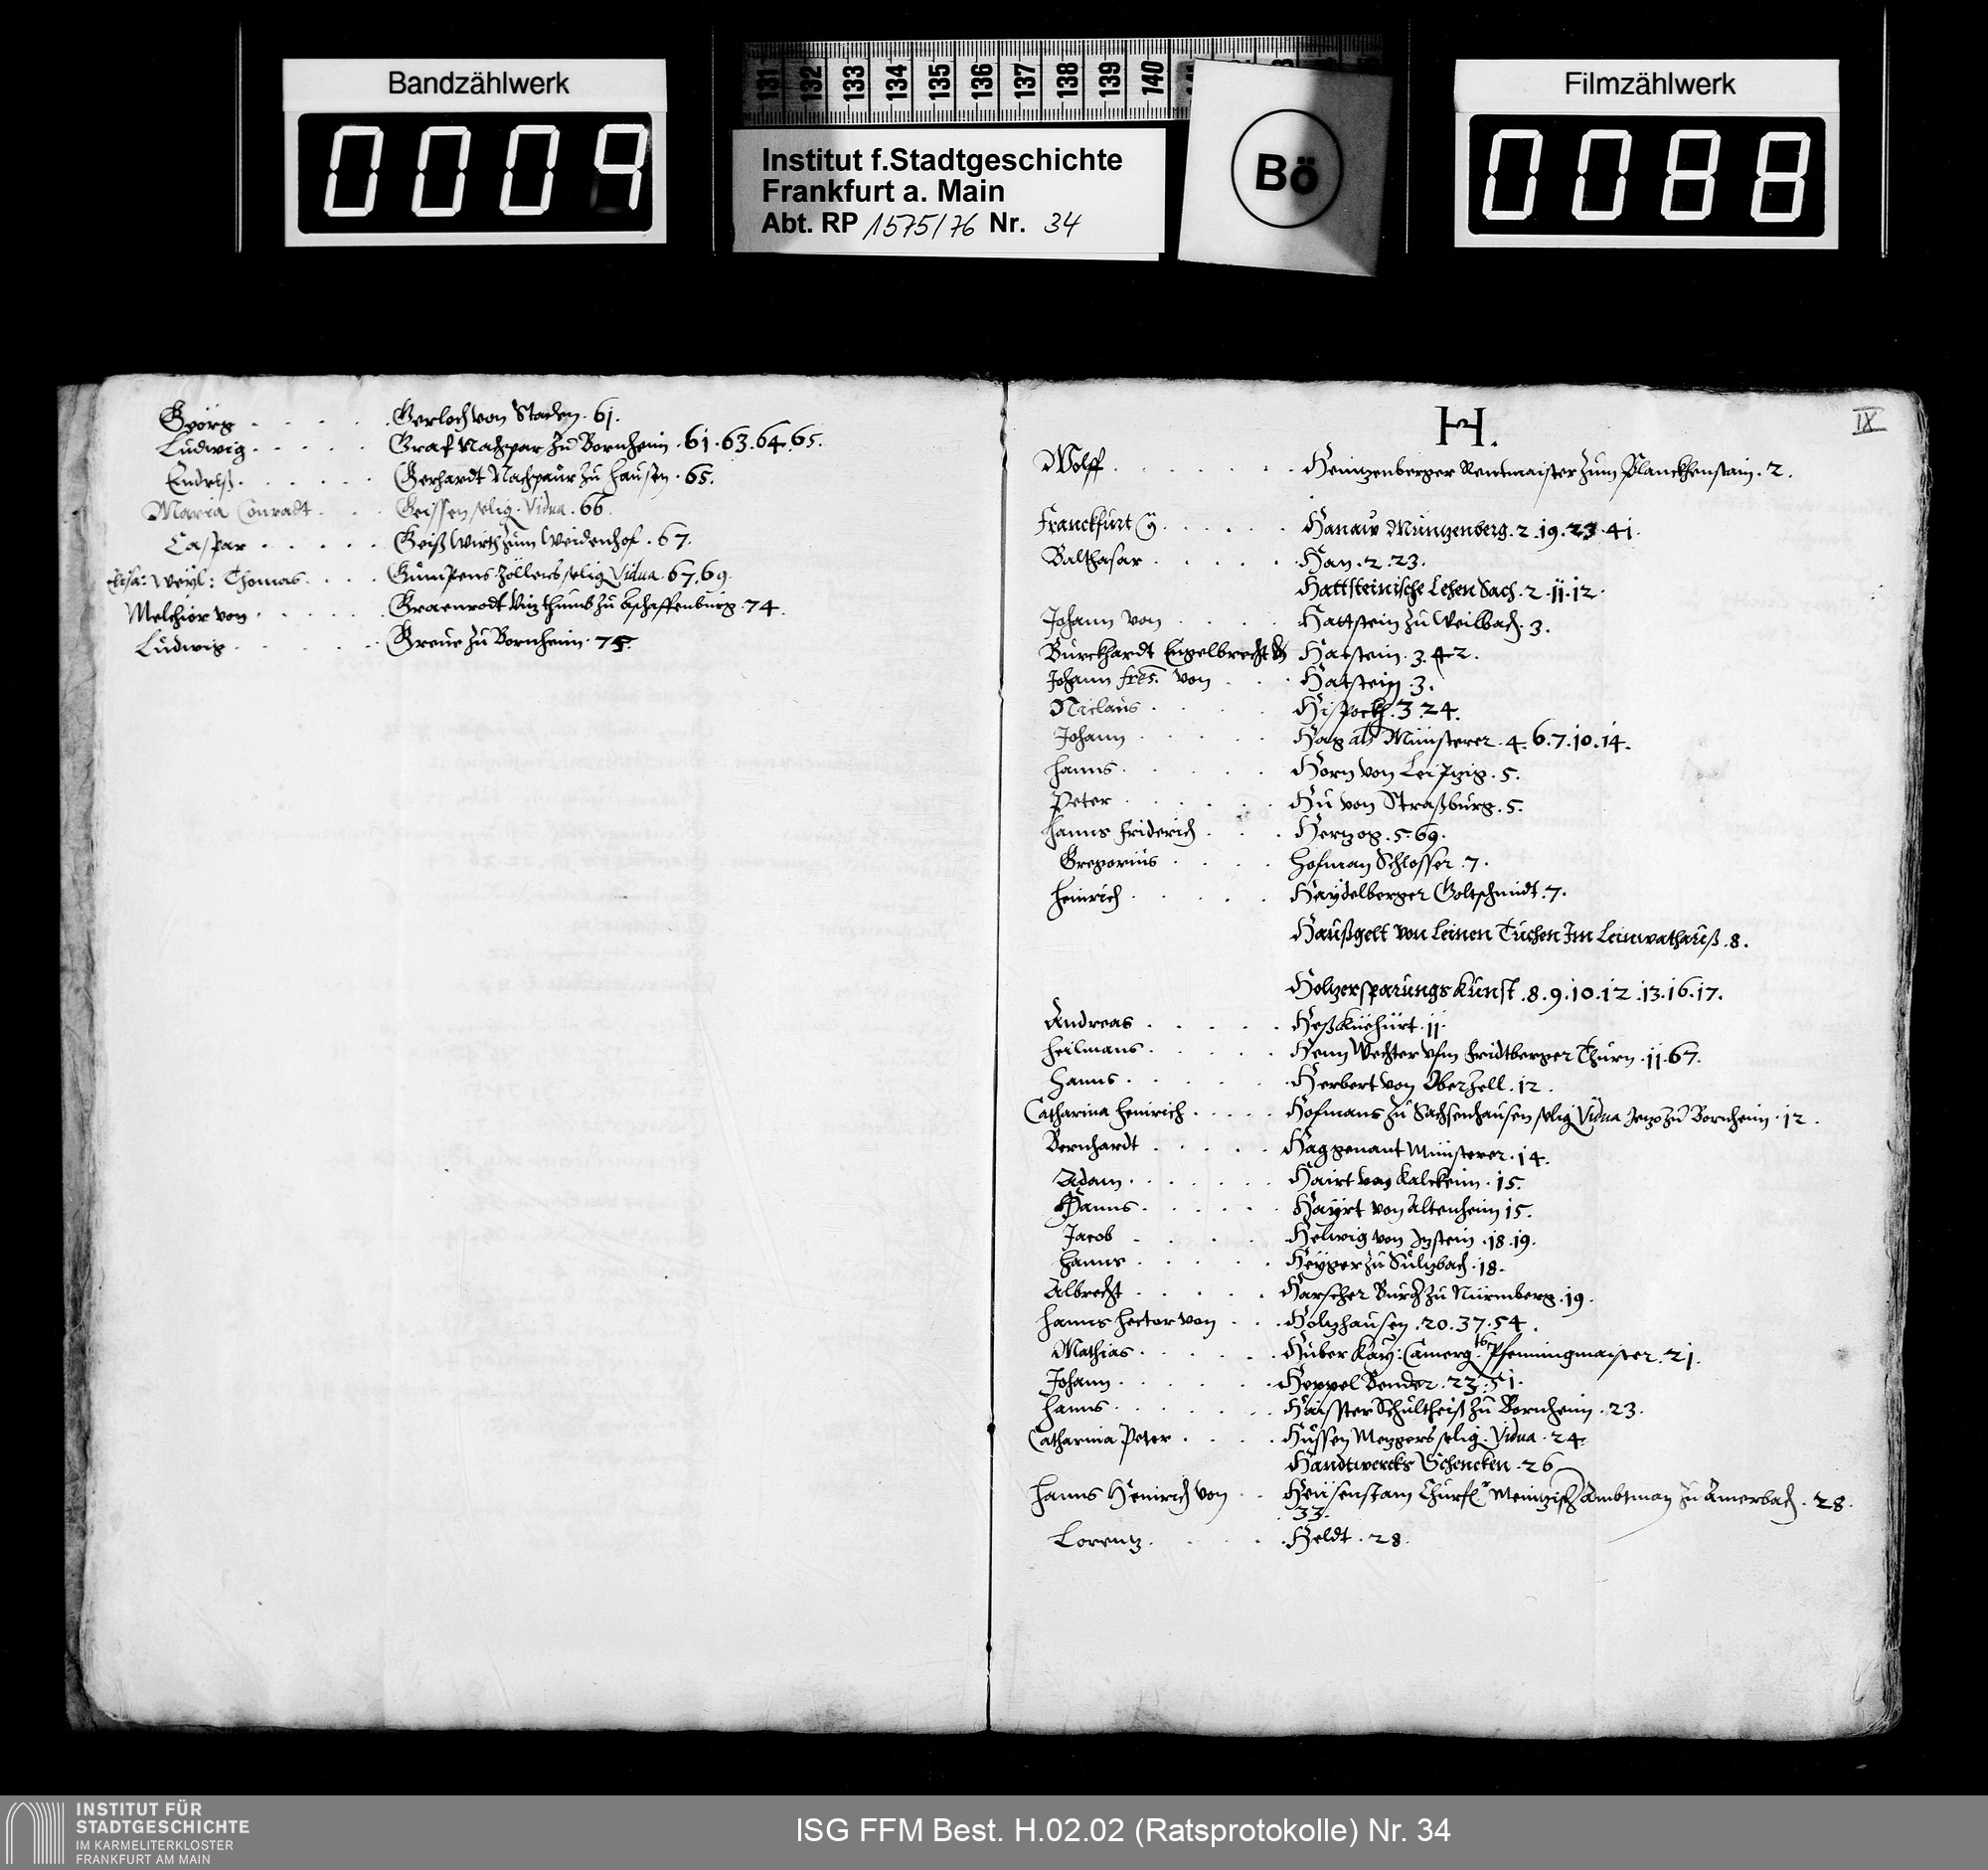 Bandzählwerk
0009
131 132 133 134 135 136 137 138 139 140
Institut f.Stadtgeschichte
Frankfurt a. Main
Abt. RP 1575/76 Nr. 34
Bö
Filmzählwerk
0088
Georg . . . . . Gerloch von Staden . 61.
Ludwig . . . . . Graf Nachpar zu Bornheim . 61 . 63 . 64 . 65.
Endreß . . . . . . Gerhardt Nachpaur zu Hausen . 65.
Maria Conradt . . . Geissen selig . Vidua . 66.
Caspar . . . . . Geiß Wirth zum Weidenhof . 67.
Elsa: Weyl: Thomas . . . . Gumpens Zöllers selig Vidua . 67 . 69.
Melchior von . . . . . Graenrodt Vizthumb zu Aschaffenburg . 74.
Ludwig . . . . . . Greue zu Bornheim . 75.
H.
IX
Wolff . . . . . . . Heintzenberger Rentmaister zum Planckhenstain . 2.
Franckfurt . . . . . Hanaw Müntzenberg . 2 . 19 . 23 . 41.
Balthasar . . . . . Han . 2 . 23.
Hattsteinische Lehen Sach . 2 . 11 . 12.
Johann von . . . . Hattstein zu Weilbach . 3.
Burckhardt Engelbrecht Hatstein . 3 . 42.
Johann von . . . Hatstein . 3.
Niclaus . . . . Hispach . 3 . 24.
Johann . . . . . Hag als Münsterer . 4 . 6 . 7 . 10 . 14.
Hanns . . . . . Horn von Leipzig . 5.
Peter . . . . . . Hu von Straßburg . 5.
Hanns Friderich . . . Hertzog . 5 . 69.
Gregorius . . . . Hofman Schlosser . 7.
Heinrich . . . . . Haydelberger Goltschmidt . 7.
Haußgelt von Leinen Tuchen Im Leinwathauß . 8.
Holtzersparungs Kunst . 8 . 9 . 10 . 12 . 13 . 16 . 17.
Andreas . . . . . Heß Küehürt . 11.
Heilmans . . . . . Henn Wechter vfm Fridtberger Thurn . 11 . 67.
Hanns . . . . . . Herbert von Oberzell . 12.
Catharina Heinrich . . . . . Hofmans zu Sachsenhausen selig Vidua Jetzo zu Bornheim . 12.
Bernhardt . . . . . Hag genant Münsterer . 14.
Adam . . . . . . . Hairt von Kalckeim . 15.
Hanns . . . . . . Hayrt von Altenheim 15.
Jacob . . . . . Helwig von Itzstein . 18 . 19.
Hanns . . . . . . Heyger zu Sultzbach . 18.
Albrecht . . . . . Harscher Burger zu Nürmberg . 19.
Hanns Hector von . . . Holtzhausen . 20 . 37 . 54.
Mathias . . . . . . Huber Kay: Camerg. Pfenningmaister . 21.
Johann . . . . . . . Heppel Bender . 23 . 51.
Hanns . . . . . . . Schultheiß zu Bornheim . 23.
Catharina Peter . . . . Hussen Metzgers selig . Vidua . 24.
Handtwercks Schencken . 26
Hanns Heinrich von . . Heusenstam Churf. Meintzisch Ambtman zu Amerbach . 28.
33.
Lorentz . . . . . Heldt . 28.
INSTITUT FÜR
STADTGESCHICHTE
IM KARMELITERKLOSTER
FRANKFURT AM MAIN
ISG FFM Best. H.02.02 (Ratsprotokolle) Nr. 34